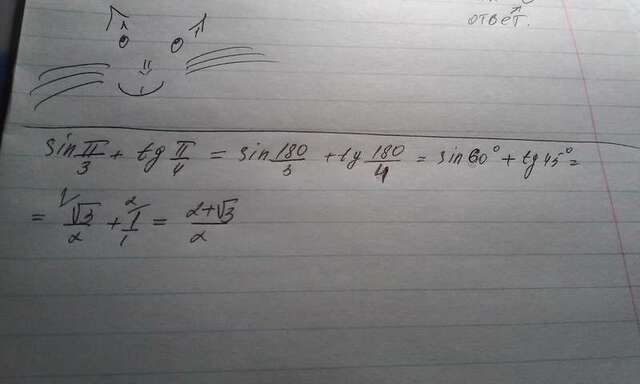 ответ.
sin π/3 + tg π/4 = sin 180/3 + tg 180/4 = sin 60° + tg 45° =
= √3/2 + 1/1 = 2+√3/2